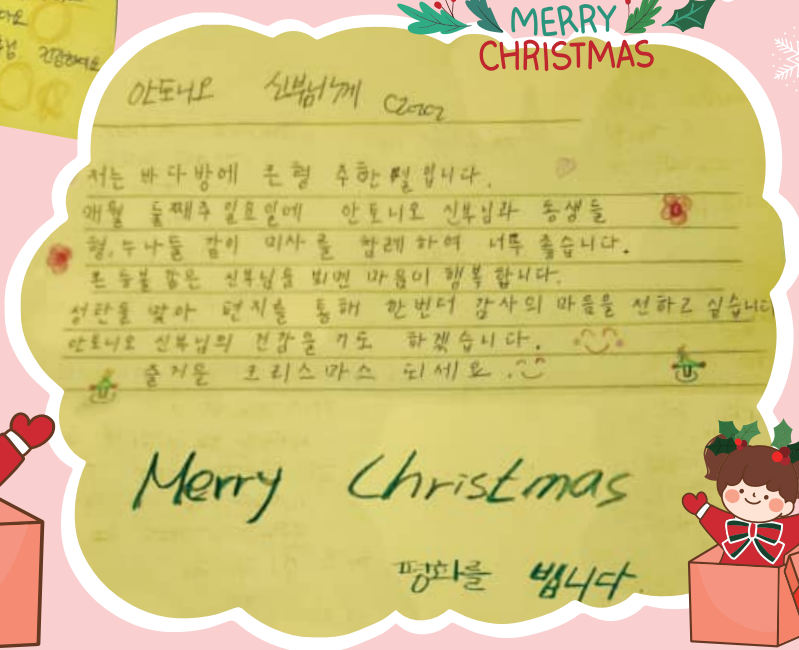 MERRY
CHRISTMAS
건강하세요
안토니오 신부님께
저는 바다방에 은형 주한 입니다.
매월 둘째주 일요일에 안토니오 신부님과 동생들
형, 누나들 같이 미사를 함례하여 너무 좋습니다.
은 신부님을 뵈면 마음이 행복합니다.
성탄을 맞아 편지를 통해 한번더 감사의 마음을 전하고 싶습니다
안토니오 신부님의 건강을 기도 하겠습니다.
즐거운 크리스마스 되세요.
Merry Christmas
평화를 빕니다.